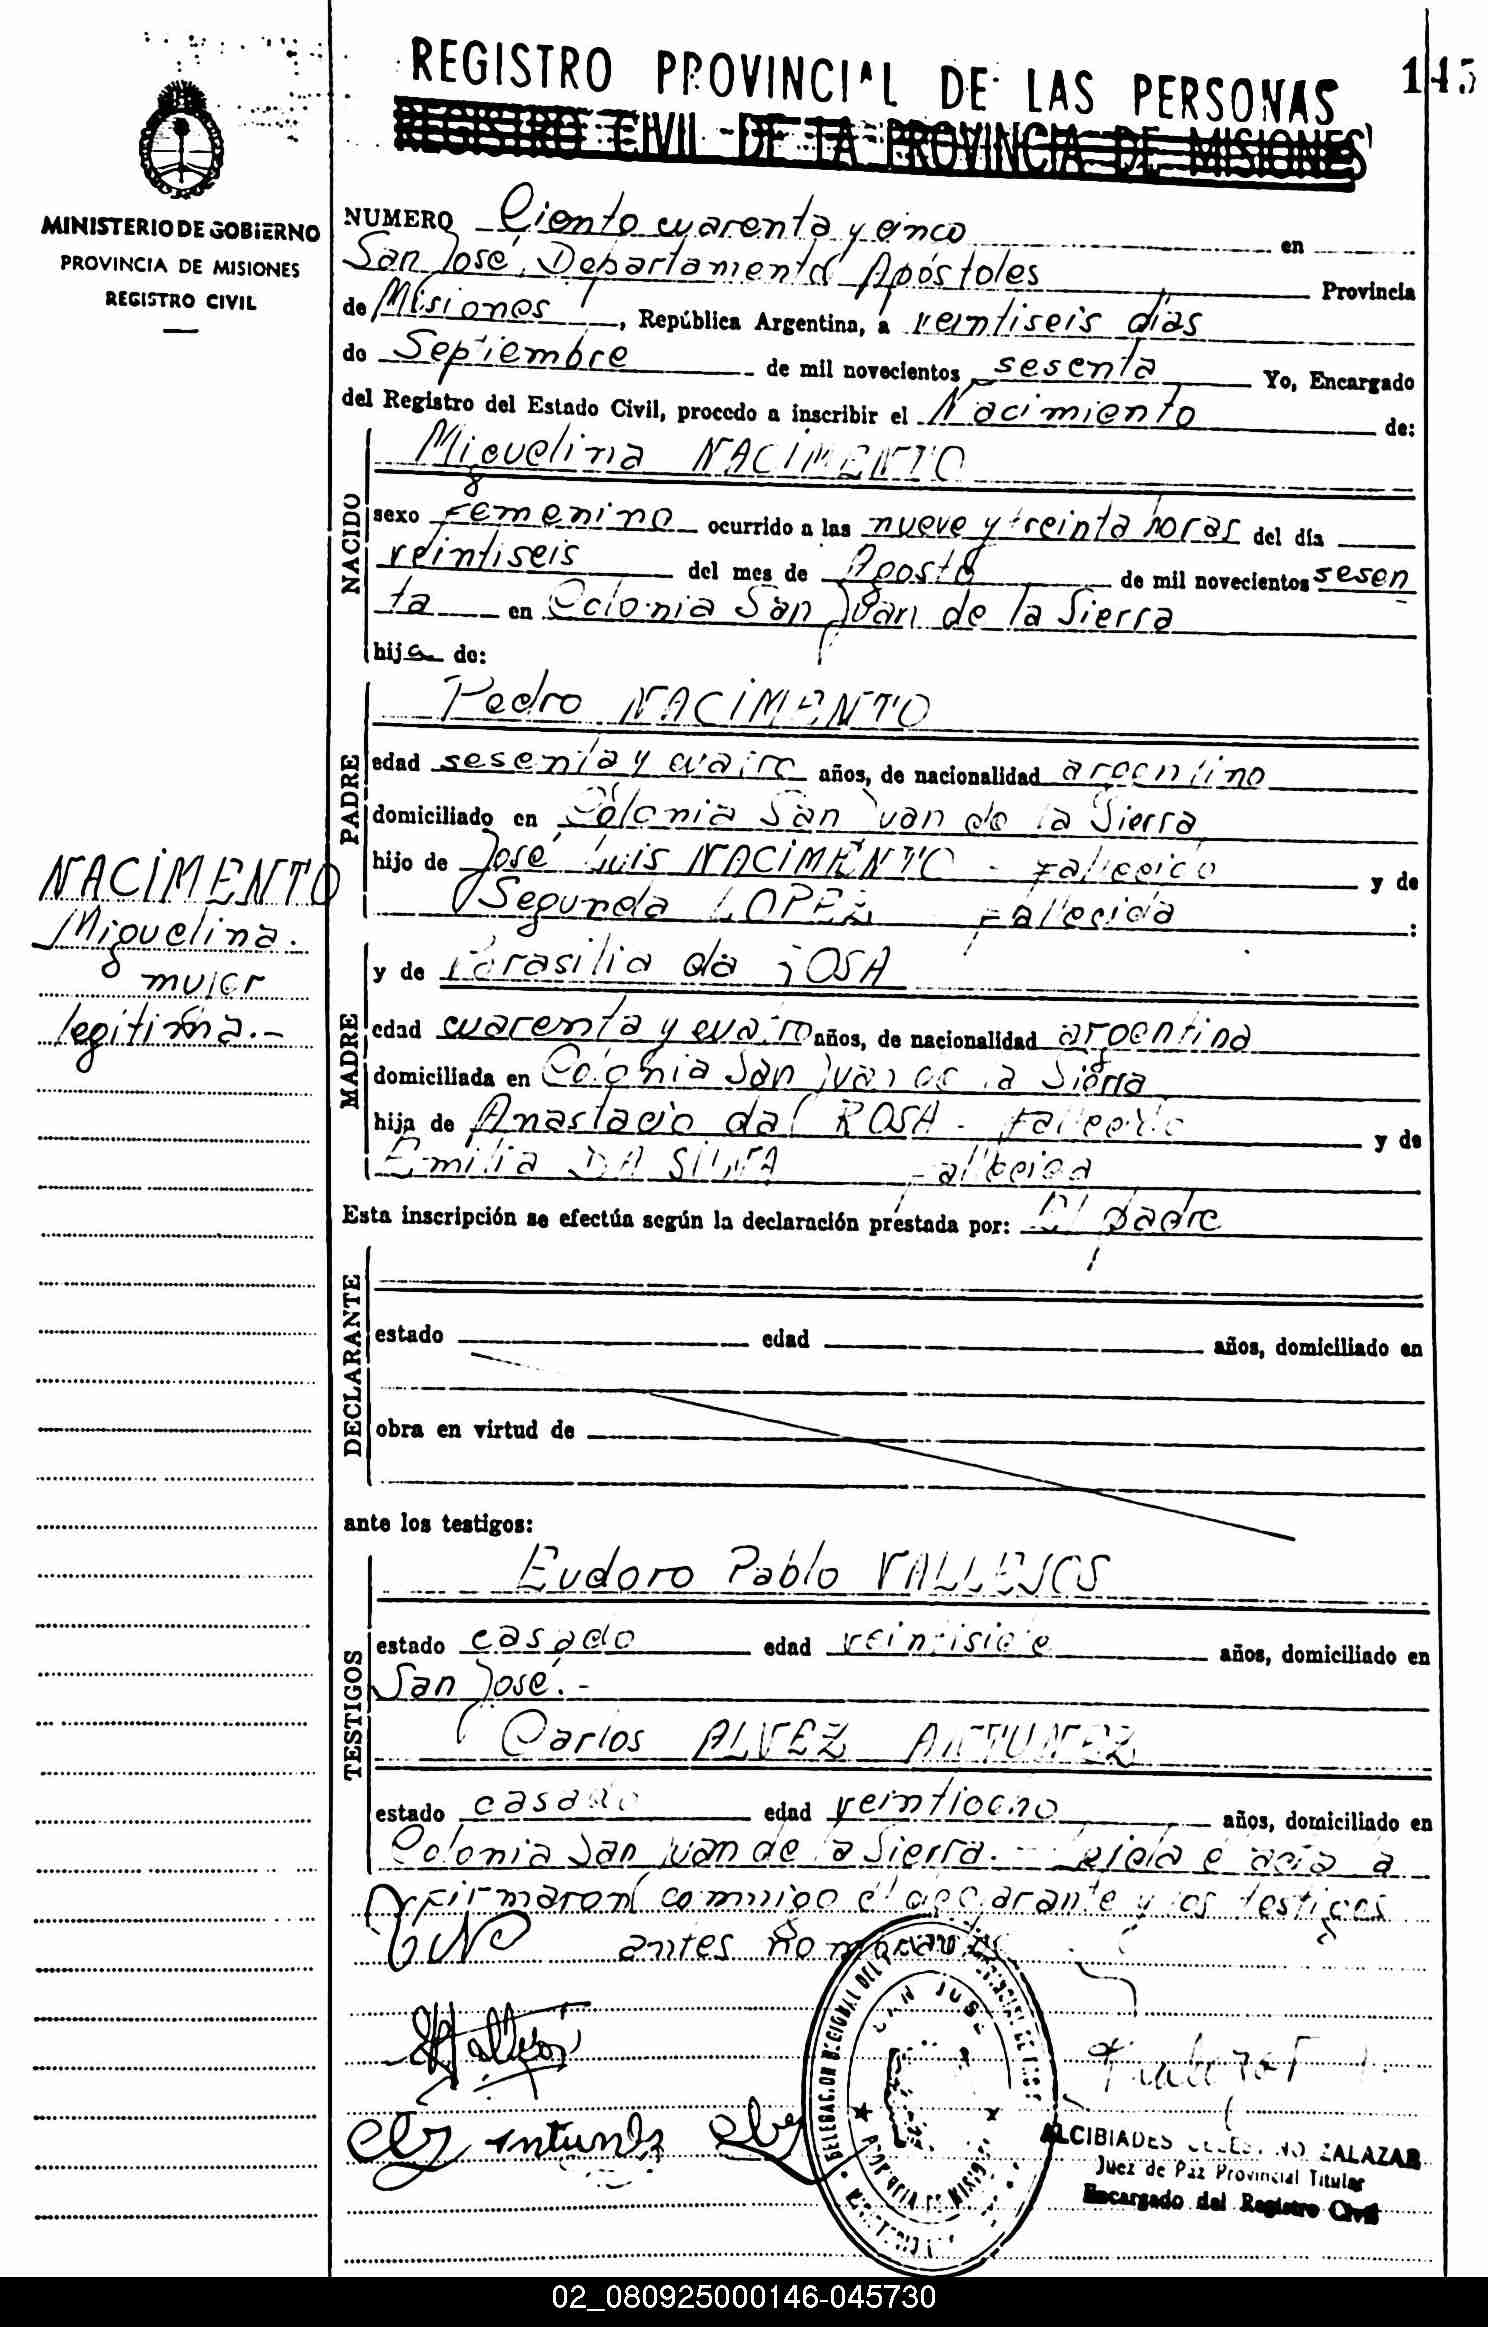 REGISTRO PROVINCIAL DE LAS PERSONAS
145
REGISTRO CIVIL DE LA PROVINCIA DE MISIONES
MINISTERIO DE GOBIERNO
PROVINCIA DE MISIONES
REGISTRO CIVIL
NUMERO Ciento cuarenta y cinco en
San José, Departamento Apóstoles Provincia
de Misiones, República Argentina, a veintiseis días
de Septiembre de mil novecientos sesenta Yo, Encargado
del Registro del Estado Civil, procedo a inscribir el Nacimiento de:
NACIDO
Miguelina NACIMENTO
sexo Femenino ocurrido a las nueve y treinta horas del día
veintiseis del mes de Agosto de mil novecientos sesen
ta en Colonia San Juan de la Sierra
hija de:
PADRE
Pedro NACIMENTO
edad sesenta y cuatro años, de nacionalidad argentino
domiciliado en Colonia San Juan de la Sierra
hijo de José Luis NACIMENTO - Fallecido y de
Segunda LOPEZ Fallecida :
NACIMENTO
Miguelina.
mujer
legitima.-
MADRE
y de da ROSA
edad cuarenta y cuatro años, de nacionalidad argentina
domiciliada en Colonia San Juan de la Sierra
hija de Anastacio da ROSA - Fallecido y de
Emilia DA SILVA Fallecida
Esta inscripción se efectúa según la declaración prestada por: El padre
DECLARANTE
estado edad años, domiciliado en
obra en virtud de
ante los testigos:
TESTIGOS
Eudoro Pablo VALLEJOS
estado casado edad veintisiete años, domiciliado en
San José.-
Carlos ALVEZ ANTUNEZ
estado casado edad veintiocho años, domiciliado en
Colonia San Juan de la Sierra.- Leida el acta la
firmaron conmigo el declarante y los testigos
antes nombrados
DELEGACION REGIONAL DEL
SAN JOSE
ALCIBIADES ZALAZAR
Juez de Paz Provincial Titular
Encargado del Registro Civil
02_080925000146-045730